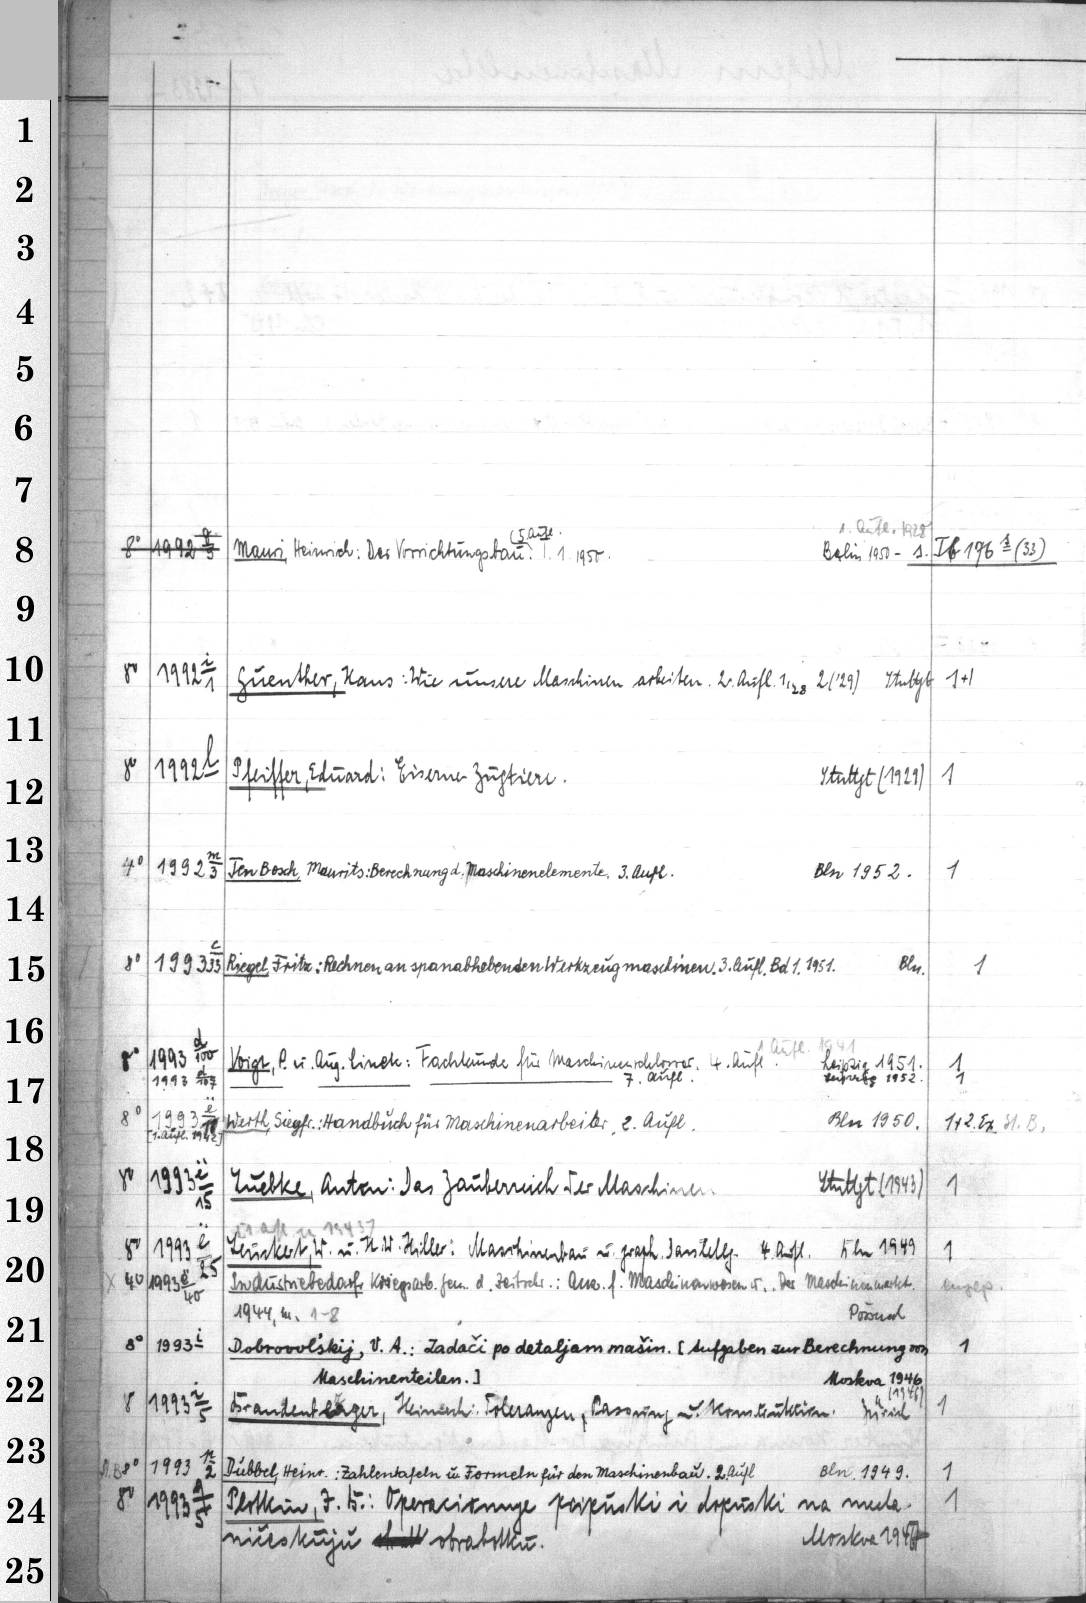 1
2
3
4
5
6
7
1. Aufl. 1928
8 8° 1992 Mauri, Heinrich: Der Vorrichtungsbau. (5. Aufl. 1. 1950. Berlin 1950 - s. If 196 (33)
9
10 8° 1992 i/1 Guenther, Hans: Wie unsere Maschinen arbeiten. 2. Aufl. 1,28 2('29) Stuttgt 1+1
11
8° 1992 l Pfeiffer, Eduard: Eiserne Zugtiere. Stuttgt (1929) 1
12
13
4° 1992 m/3 Ten Bosch, Maurits: Berechnung d. Maschinenelemente. 3. Aufl. Bln 1952. 1
14
15 8° 1993 c/33 Riegel, Fritz: Rechnen an spanabhebenden Werkzeugmaschinen. 3. Aufl. Bd 1. 1951. Bln. 1
16
1 Aufl. 1941
8° 1993 d/100 Voigt, P. u. Aug. Linek: Fachkunde für Maschinenschlosser. 4. Aufl. Leipzig 1951. 1
17 1993 d/107 7. Aufl. Leipzig 1952. 1
8° 1993 Werth, Siegfr.: Handbuch für Maschinenarbeiter, 2. Aufl. Bln 1950. 1+2. Ex St. B.
[1. Aufl. 1942]
18
8° 1993 ë/15 Luebke, Anton: Das Zauberreich der Maschinen. Stuttgt (1943) 1
19
8° 1993 ë/25 Leuckert, W. u. H. W. Hiller: Maschinenbau u. graph. Darstellg. 4. Aufl. Bln 1949 1
20 X 4° 1993 e/40 Industriebedarf, Kriegsarb. gem. d. Zeitschr.: Anz. f. Maschinenwesen u. Der Maschinenmarkt. eingep.
1944, 1-8 Pössneck
21 8° 1993 i Dobrovol'skij, V. A.: Zadači po detaljam mašin. [Aufgaben zur Berechnung von 1
Maschinenteilen.] Moskva 1946
22 8 1993 i/5 Brandenberger, Heinrich: Toleranzen, Passung u. Konstruktion. Zürich (1946) 1
23
8° 1993 n/2 Dubbel, Heinr.: Zahlentafeln u. Formeln für den Maschinenbau. 2. Aufl Bln. 1949. 1
24 8° 1993 Plotkin, I. B.: Operacionnye pripuski i dopuski na mecha- 1
ničeskuju obrabotku. Moskva 1947
25